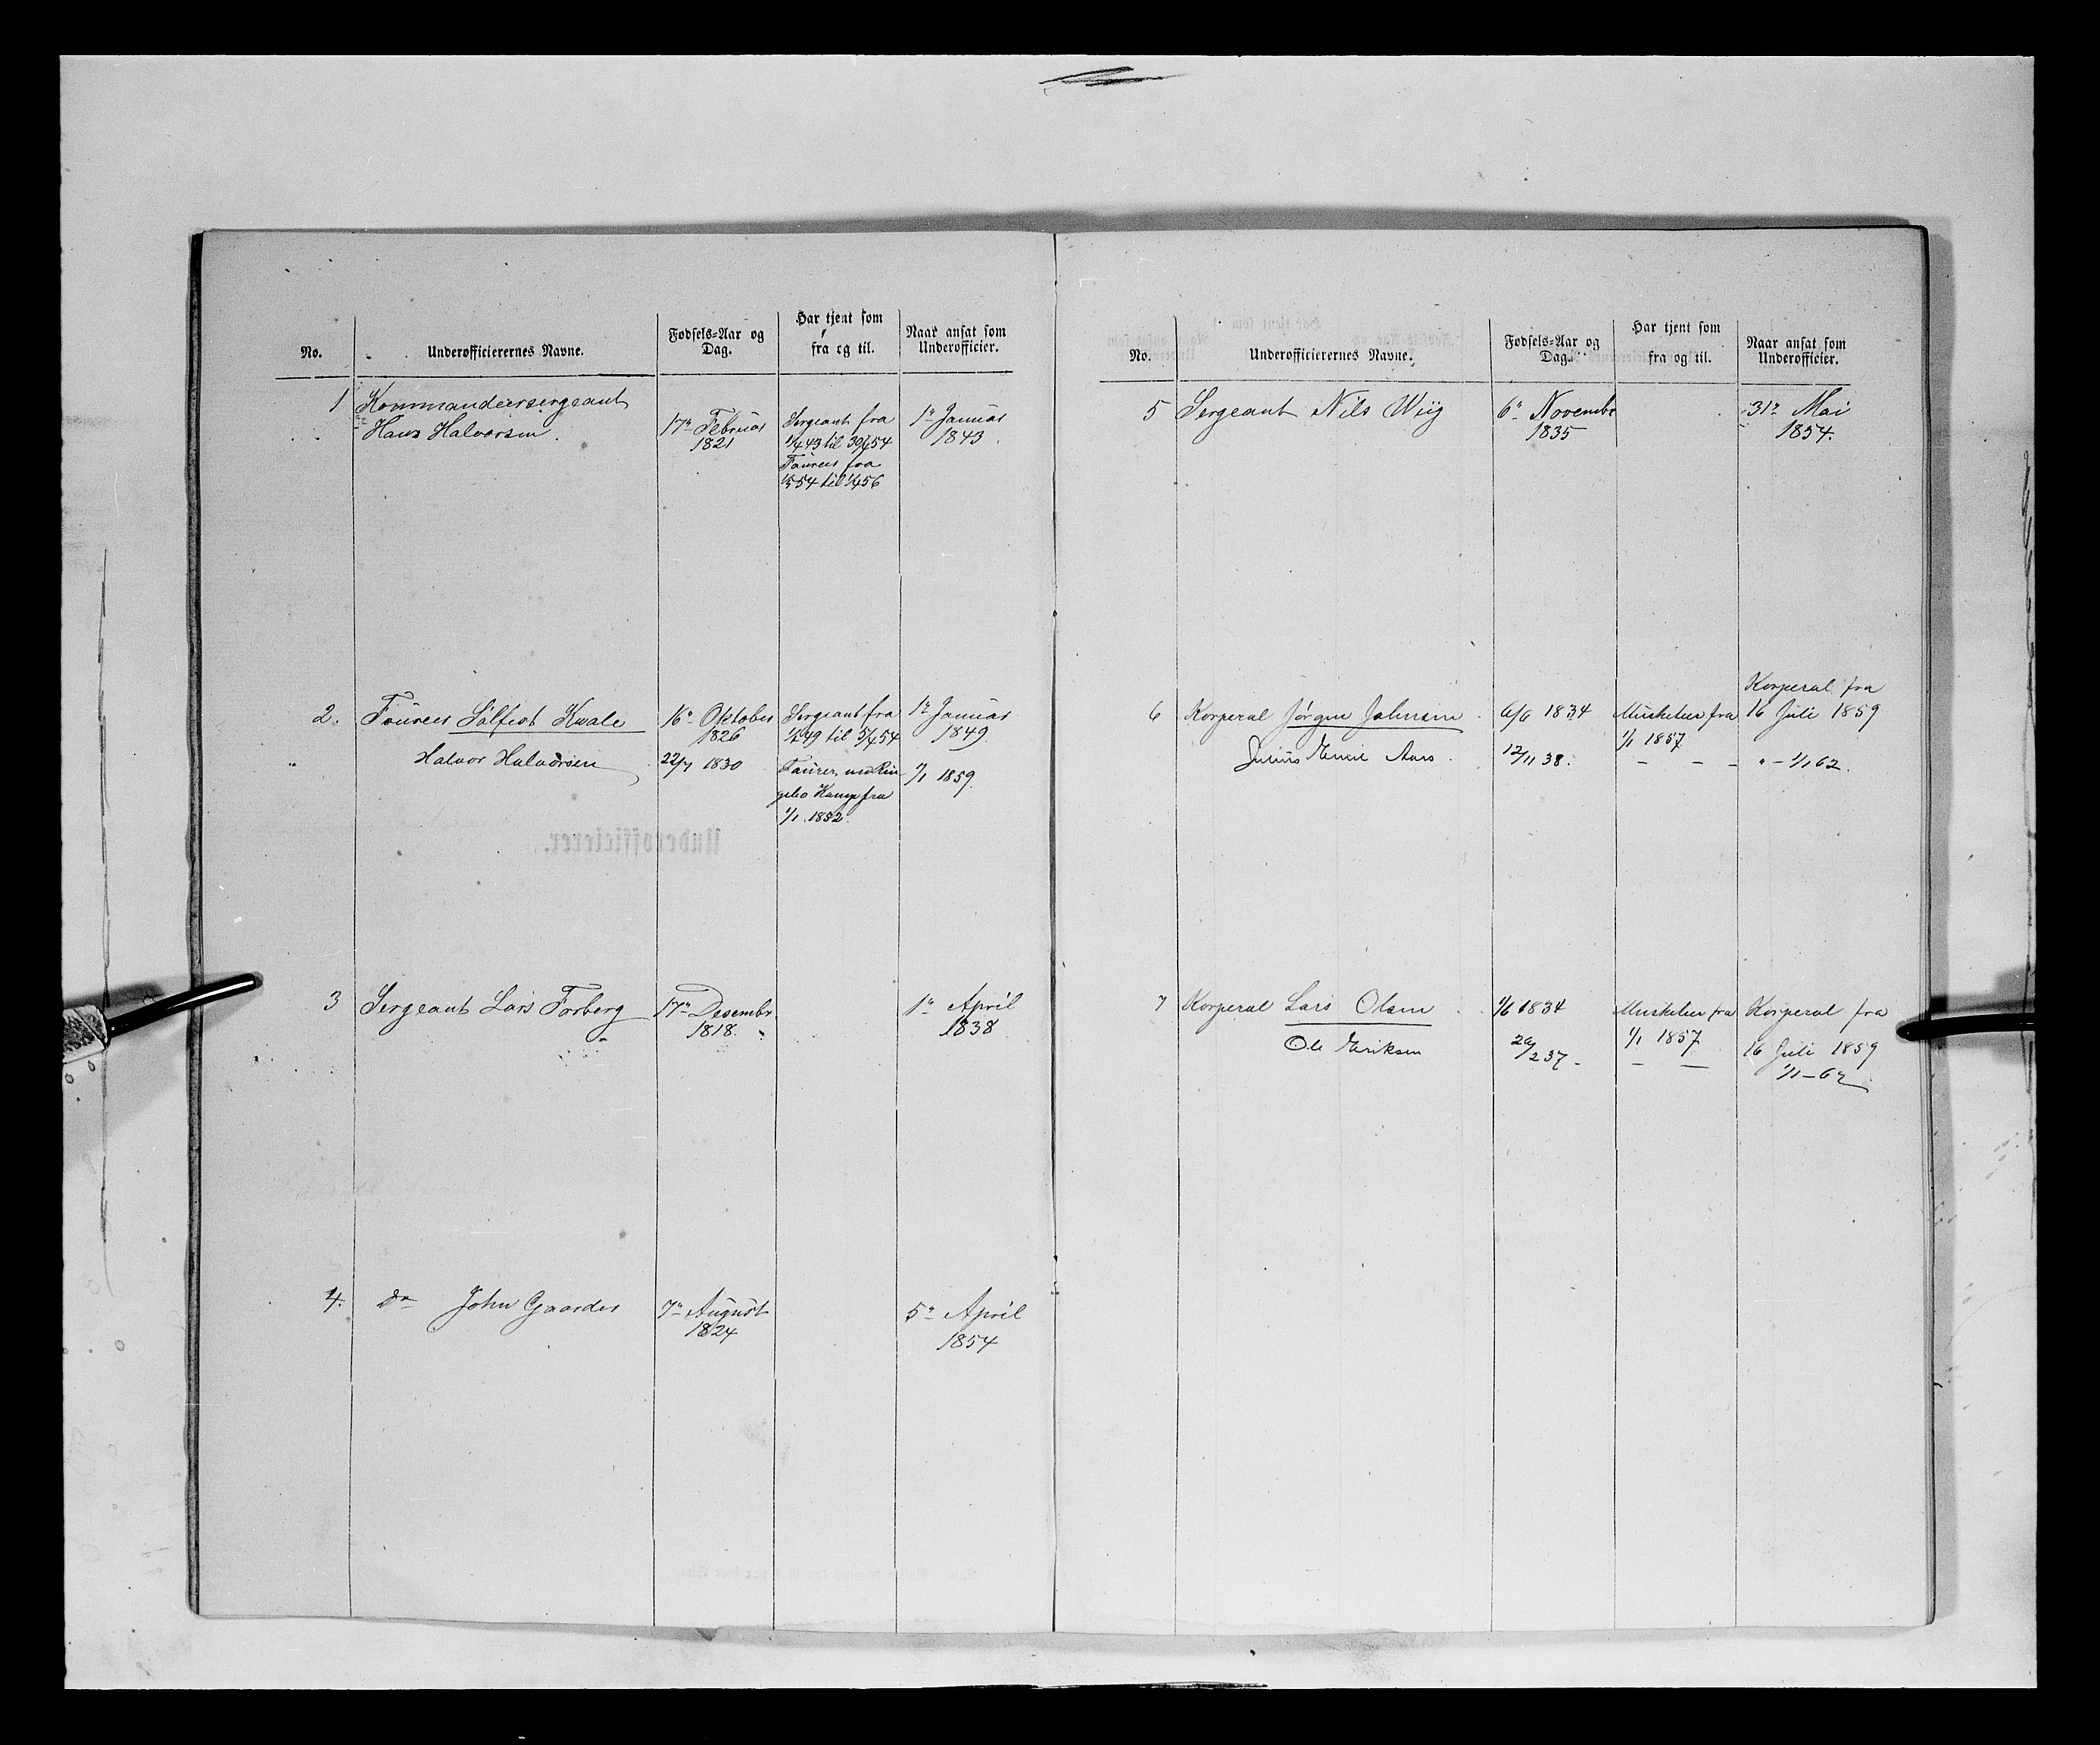 No.
Underofficierernes Navne.
Fødsels-Aar og
Dag.
Har tjent som
fra og til.
Naar ansat som
Underofficier.
1
Kommandeersergeant
Hans Halvorsen.
17de Februar
1821
Sergeant fra
1/4 43 til 30/4 54
Fourer fra
54 til 56
1ste Januar
1843.
2.
Fourer Solfest Kvale
16de Oktober
1826
Sergeant fra
49 til 54
1ste Januar
1849.
Halvor Halvorsen
22/7 1830
Fourer ved Rin
gebo Komp fra
1/1 1852.
1/1 1859.
3
Sergeant Lars Forberg
17de Desember
1818.
1ste April
1838
4.
Do John Gaarder
7de August
1824
5te April
1854
No.
Underofficierernes Navne.
Fødsels-Aar og
Dag.
Har tjent som
fra og til.
Naar ansat som
Underofficier.
5
Sergeant Nils Wiig
6te Novembr
1835
31te Mai
1854.
6
Korperal Jørgen Johnsen
6/6 1834
Musketeer fra
1/1 1857
Korperal fra
16 Juli 1859
Julius Emil Aars.
12/11 38.
- - -
" - 1/1 62.
7
Korperal Lars Olsen
1/6 1834
Musketeer fra
1/1 1857
Korperal fra
16 Juli 1859
Ole Eriksen
20/2 37 -
- -
1/1 - 62
Underofficierer.